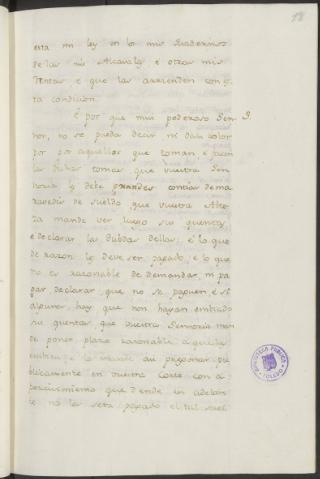 18
esta mi ley en lo mis quadernos
de las mis Alcavalas é otras mis
Rentas é que las arrienden con es-
ta condicion.
É por que mui poderoso Sen- 9.
nor, no se pueda decir ni dar color
por por aquellos que toman é facen
las dichas tomas que vuestra Sen
noria les debe grandes contias de ma
ravedis de sueldo que vuestra Alte-
za mande ver luego sus quentas,
é declarar las dubdas dellas, é lo que
de razon les debe ser pagado, é lo que
no es razonable de demandar, ni pa
gar, declarar, que no se paguen é si
algunos hay que non hayan embiado
sus quentas que vuestra Sennoria man
de poner plazo razonable á que las
embien, é lo mande asi pregonar pu
blicamente en vuestra Corte con a-
percivimiento que dende en adelan
te no les sera pagado el tal suel
BIBLIOTECA PUBLICA
TOLEDO